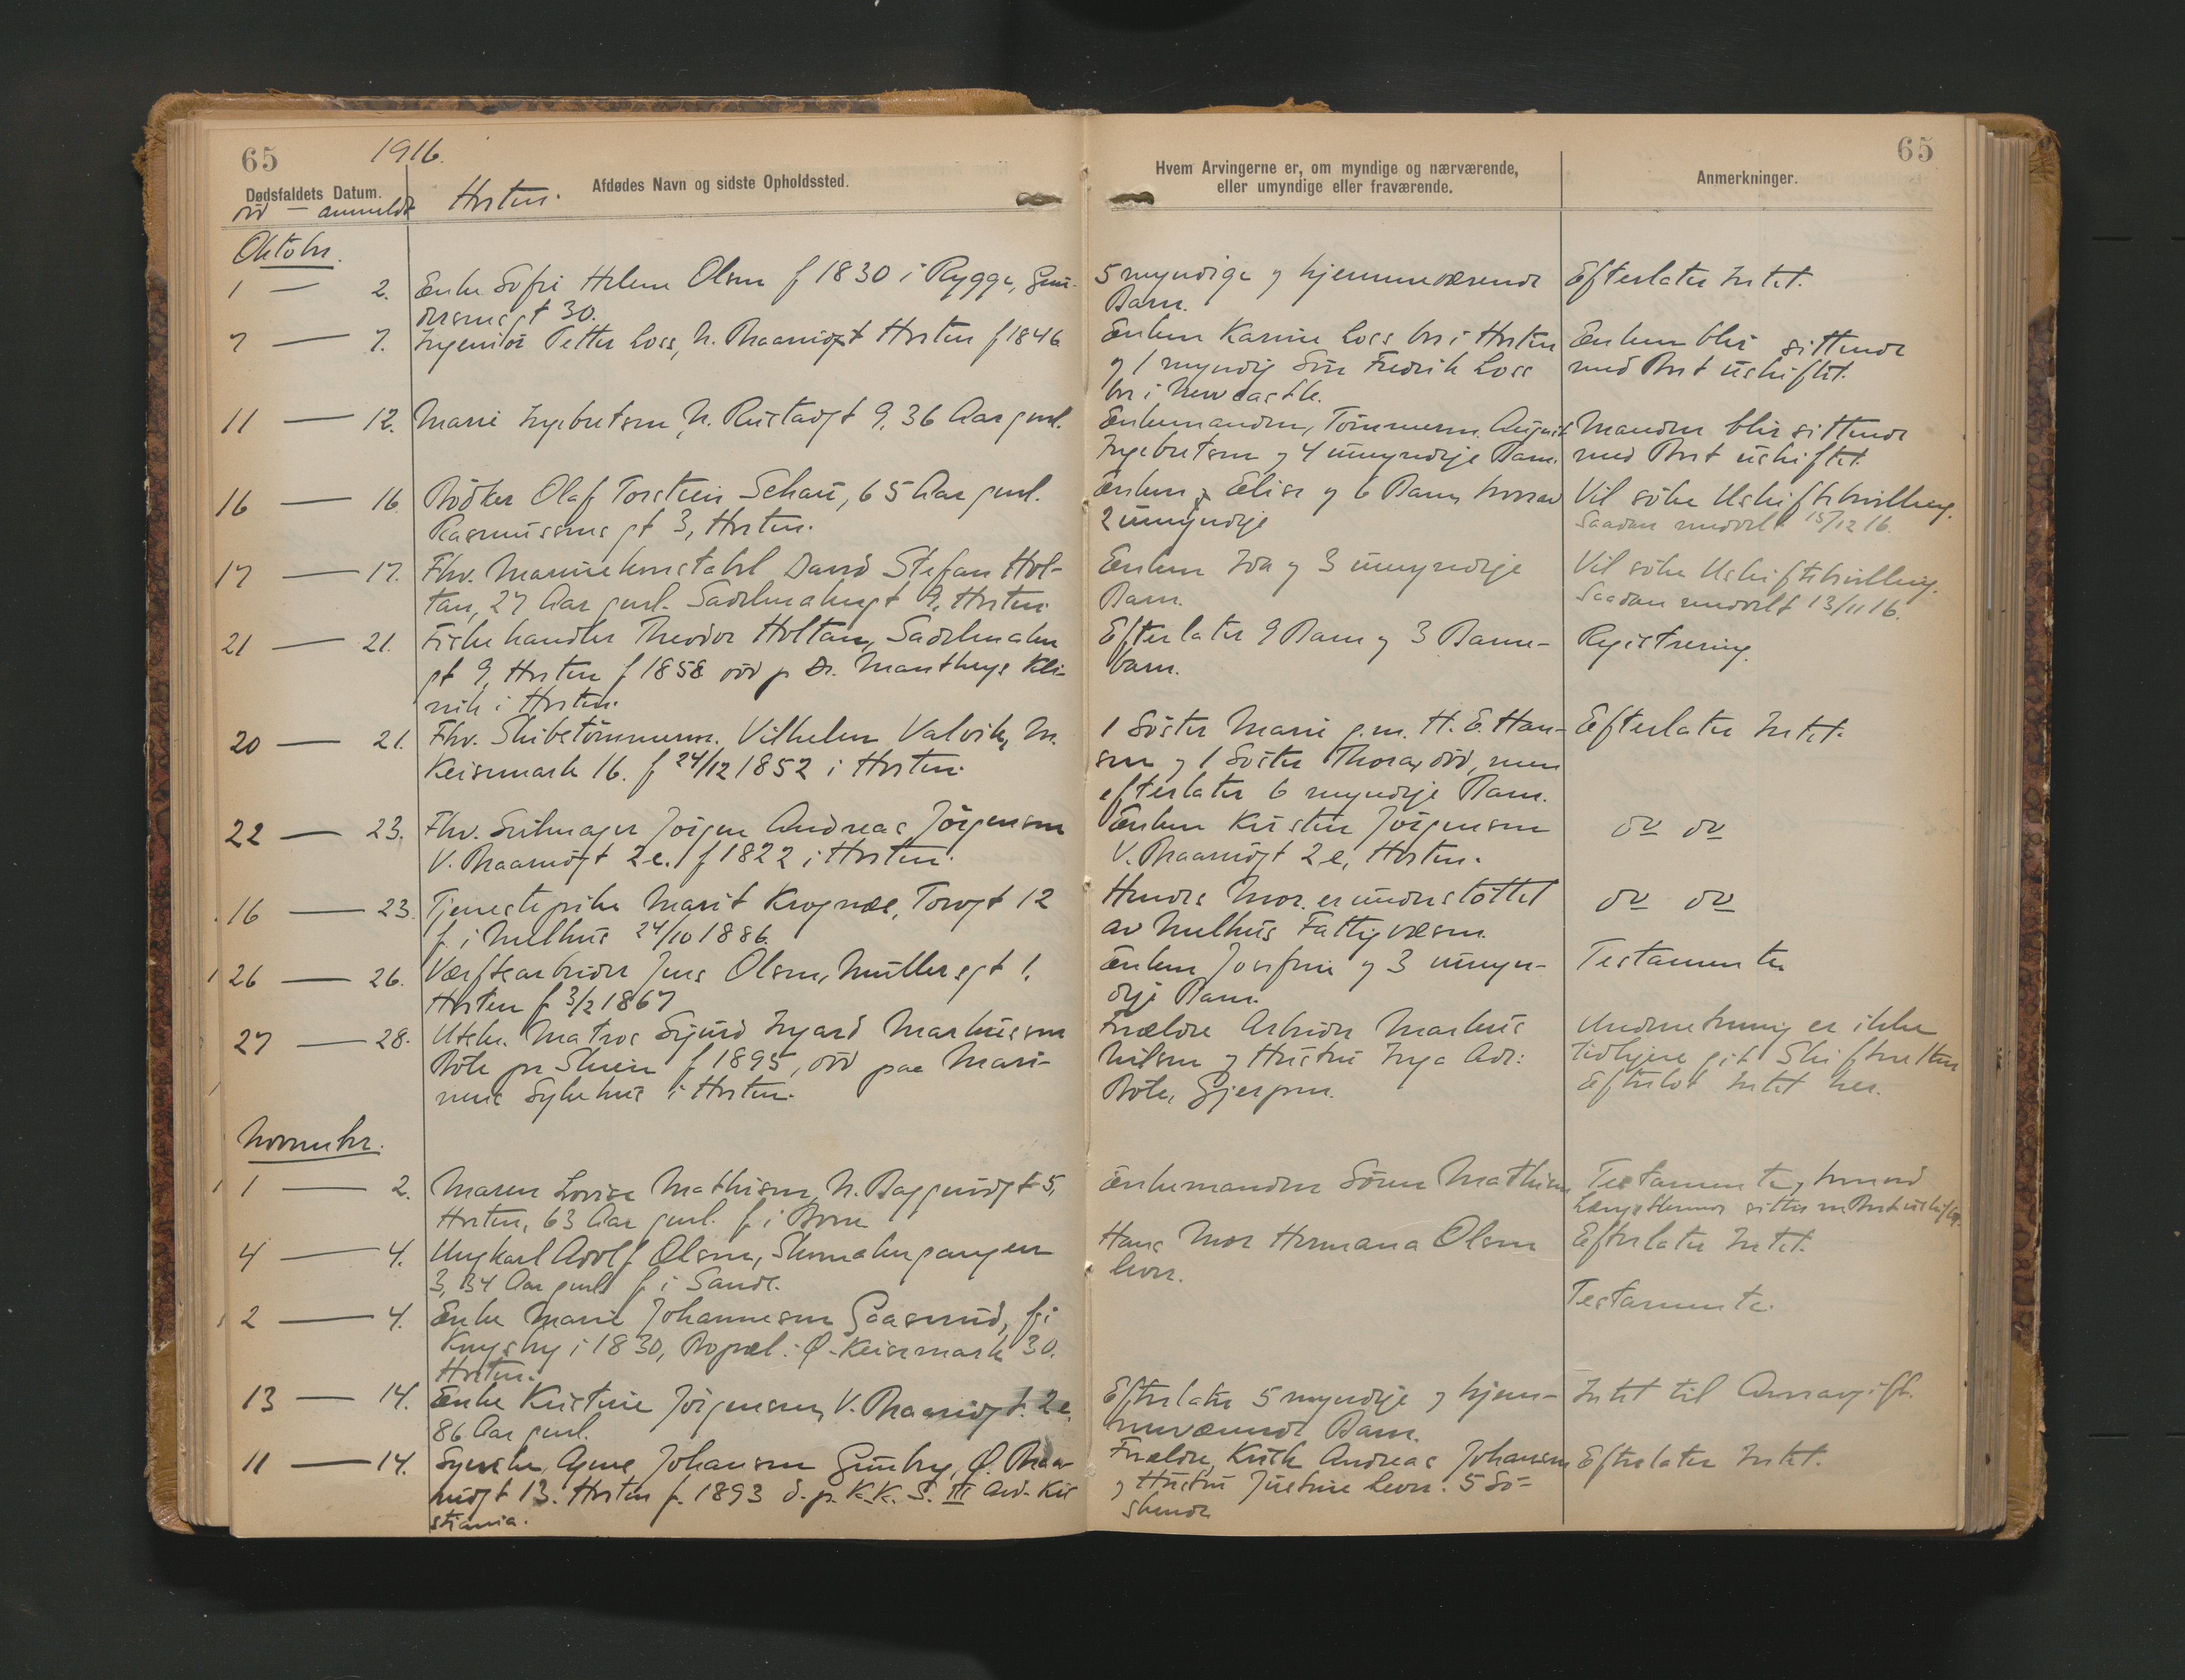 65
1916.
65
Dødsfaldets Datum.
død — anmeldt
Horten.
Afdødes Navn og sidste Opholdssted.
Hvem Arvingerne er, om myndige og nærværende,
eller umyndige eller fraværende.
Anmerkninger.
Oktober.
1 — 2.
Enke Sofie Helene Olsen f 1830 i Rygge, Gun-
dersensgt 30.
5 myndige og hjemmeværende
Barn.
Efterlater Intet.
7 — 7.
Ingeniör Petter Loss, N. Braarudgt Horten f 1846
Enken Karine Loss bor i Horten
og 1 myndig Sön Fredrik Loss
bor i Newcastle.
Enken blir sittende
med Boet uskiftet.
11 — 12.
Marie Ingebretsen, N. Rustadgt 9, 36 Aar gml.
Enkemanden, Tömmerm. August
Ingebretsen og 4 umyndige Barn.
Manden blir sittende
med Boet uskiftet.
16 — 16.
Bödker Olaf Torstein Schau, 65 Aar gml.
Rasmussens gt 3, Horten.
Enken Elise og 6 Barn, hvorav
2 umyndige
Vil söke Uskiftebevilling.
Saadan meddelt 15/12 16.
17 — 17.
Fhv. Marinekonstabel David Stefan Hol-
tan, 27 Aar gml. Sadelmakergt 9, Horten.
Enken Ida og 3 umyndige
Barn.
Vil söke Uskiftebevilling.
Saadan meddelt 13/11 16.
21 — 21.
Fiskehandler Theodor Holtan, Sadelmaker
gt 9, Horten f 1858 död p Dr. Mantheys Kli-
nik i Horten.
Efterlater 9 Barn og 3 Barne-
barn.
Registrering.
20 — 21.
Fhv. Skibstömmerm. Vilhelm Valvik, N.
Keisemark 16. f 24/12 1852 i Horten.
1 Söster Marie g.m. H. E. Han-
sen og 1 Söster Thora, död, men
efterlater 6 myndige Barn.
Efterlater Intet.
22 — 23.
Fhv. Seilmager Jörgen Andreas Jörgensen
V. Braarudgt 2 e. f 1822 i Horten.
Enken Kirstine Jörgensen
V. Braarudgt 2 e, Horten.
do do
16 — 23.
Tjenestepike Marit Krognæs, Torvgt 12
f. i Melhus 24/10 1886.
Hendes Mor er understöttet
av Melhus Fattigvæsen.
do do
26 — 26.
Værftsarbeider Jens Olsen, Müllersgt 1.
Horten f 3/2 1867
Enken Josefine og 3 umyn-
dige Barn.
Testamente
27 — 28.
Utskr. Matros Sigurd Ingard Markussen
Böle pr Skien f 1895, död paa Mari-
nens Sykehus i Horten.
Forældre Arbeider Markus
Nilsen og Hustru Inga Adr:
Böle, Gjerpen.
Underretning er ikke
tidligere git Skifteretten
Efterlot Intet her.
November.
1 — 2.
Maren Lovise Mathisen, N. Baggerudgt 5,
Horten, 63 Aar gml. f i Borre
Enkemanden Sören Mathisen
Testamente, hvorved
Længstlevende sitter m Boet uskiftet.
4 — 4.
Ungkarl Adolf Olsen, Skomakergangen
3, 34 Aar gml f i Sande.
Hans Mor Hermana Olsen
lever.
Efterlater Intet.
2 — 4.
Enke Marie Johannesen Gaaserud, f i
Krogsby i 1830, Bopæl: Ø. Keisemark 30.
Horten.
Testamente.
13 — 14.
Enke Kirstine Jörgensen, V. Braarudgt. 2 e.
86 Aar gml.
Efterlater 5 myndige og hjem-
meværende Barn.
Intet til Arveavgift.
11 — 14.
Syerske Agnes Johansen Gunby, Ø. Braa-
rudgt 13. Horten f. 1893 d. p. K.K. S. III Avd. Kri
stiania.
Forældre, Kusk Andreas Johansen
og Hustru Justine lever. 5 Sö-
skende
Efterlater Intet.